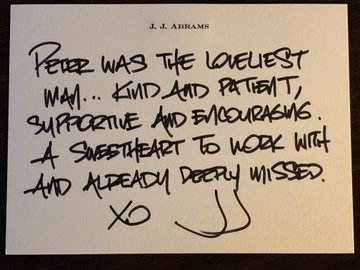 J. J. ABRAMS
PETER WAS THE LOVELIEST
MAN... KIND AND PATIENT,
SUPPORTIVE AND ENCOURAGING.
A SWEETHEART TO WORK WITH
AND ALREADY DEEPLY MISSED.
XO JJ